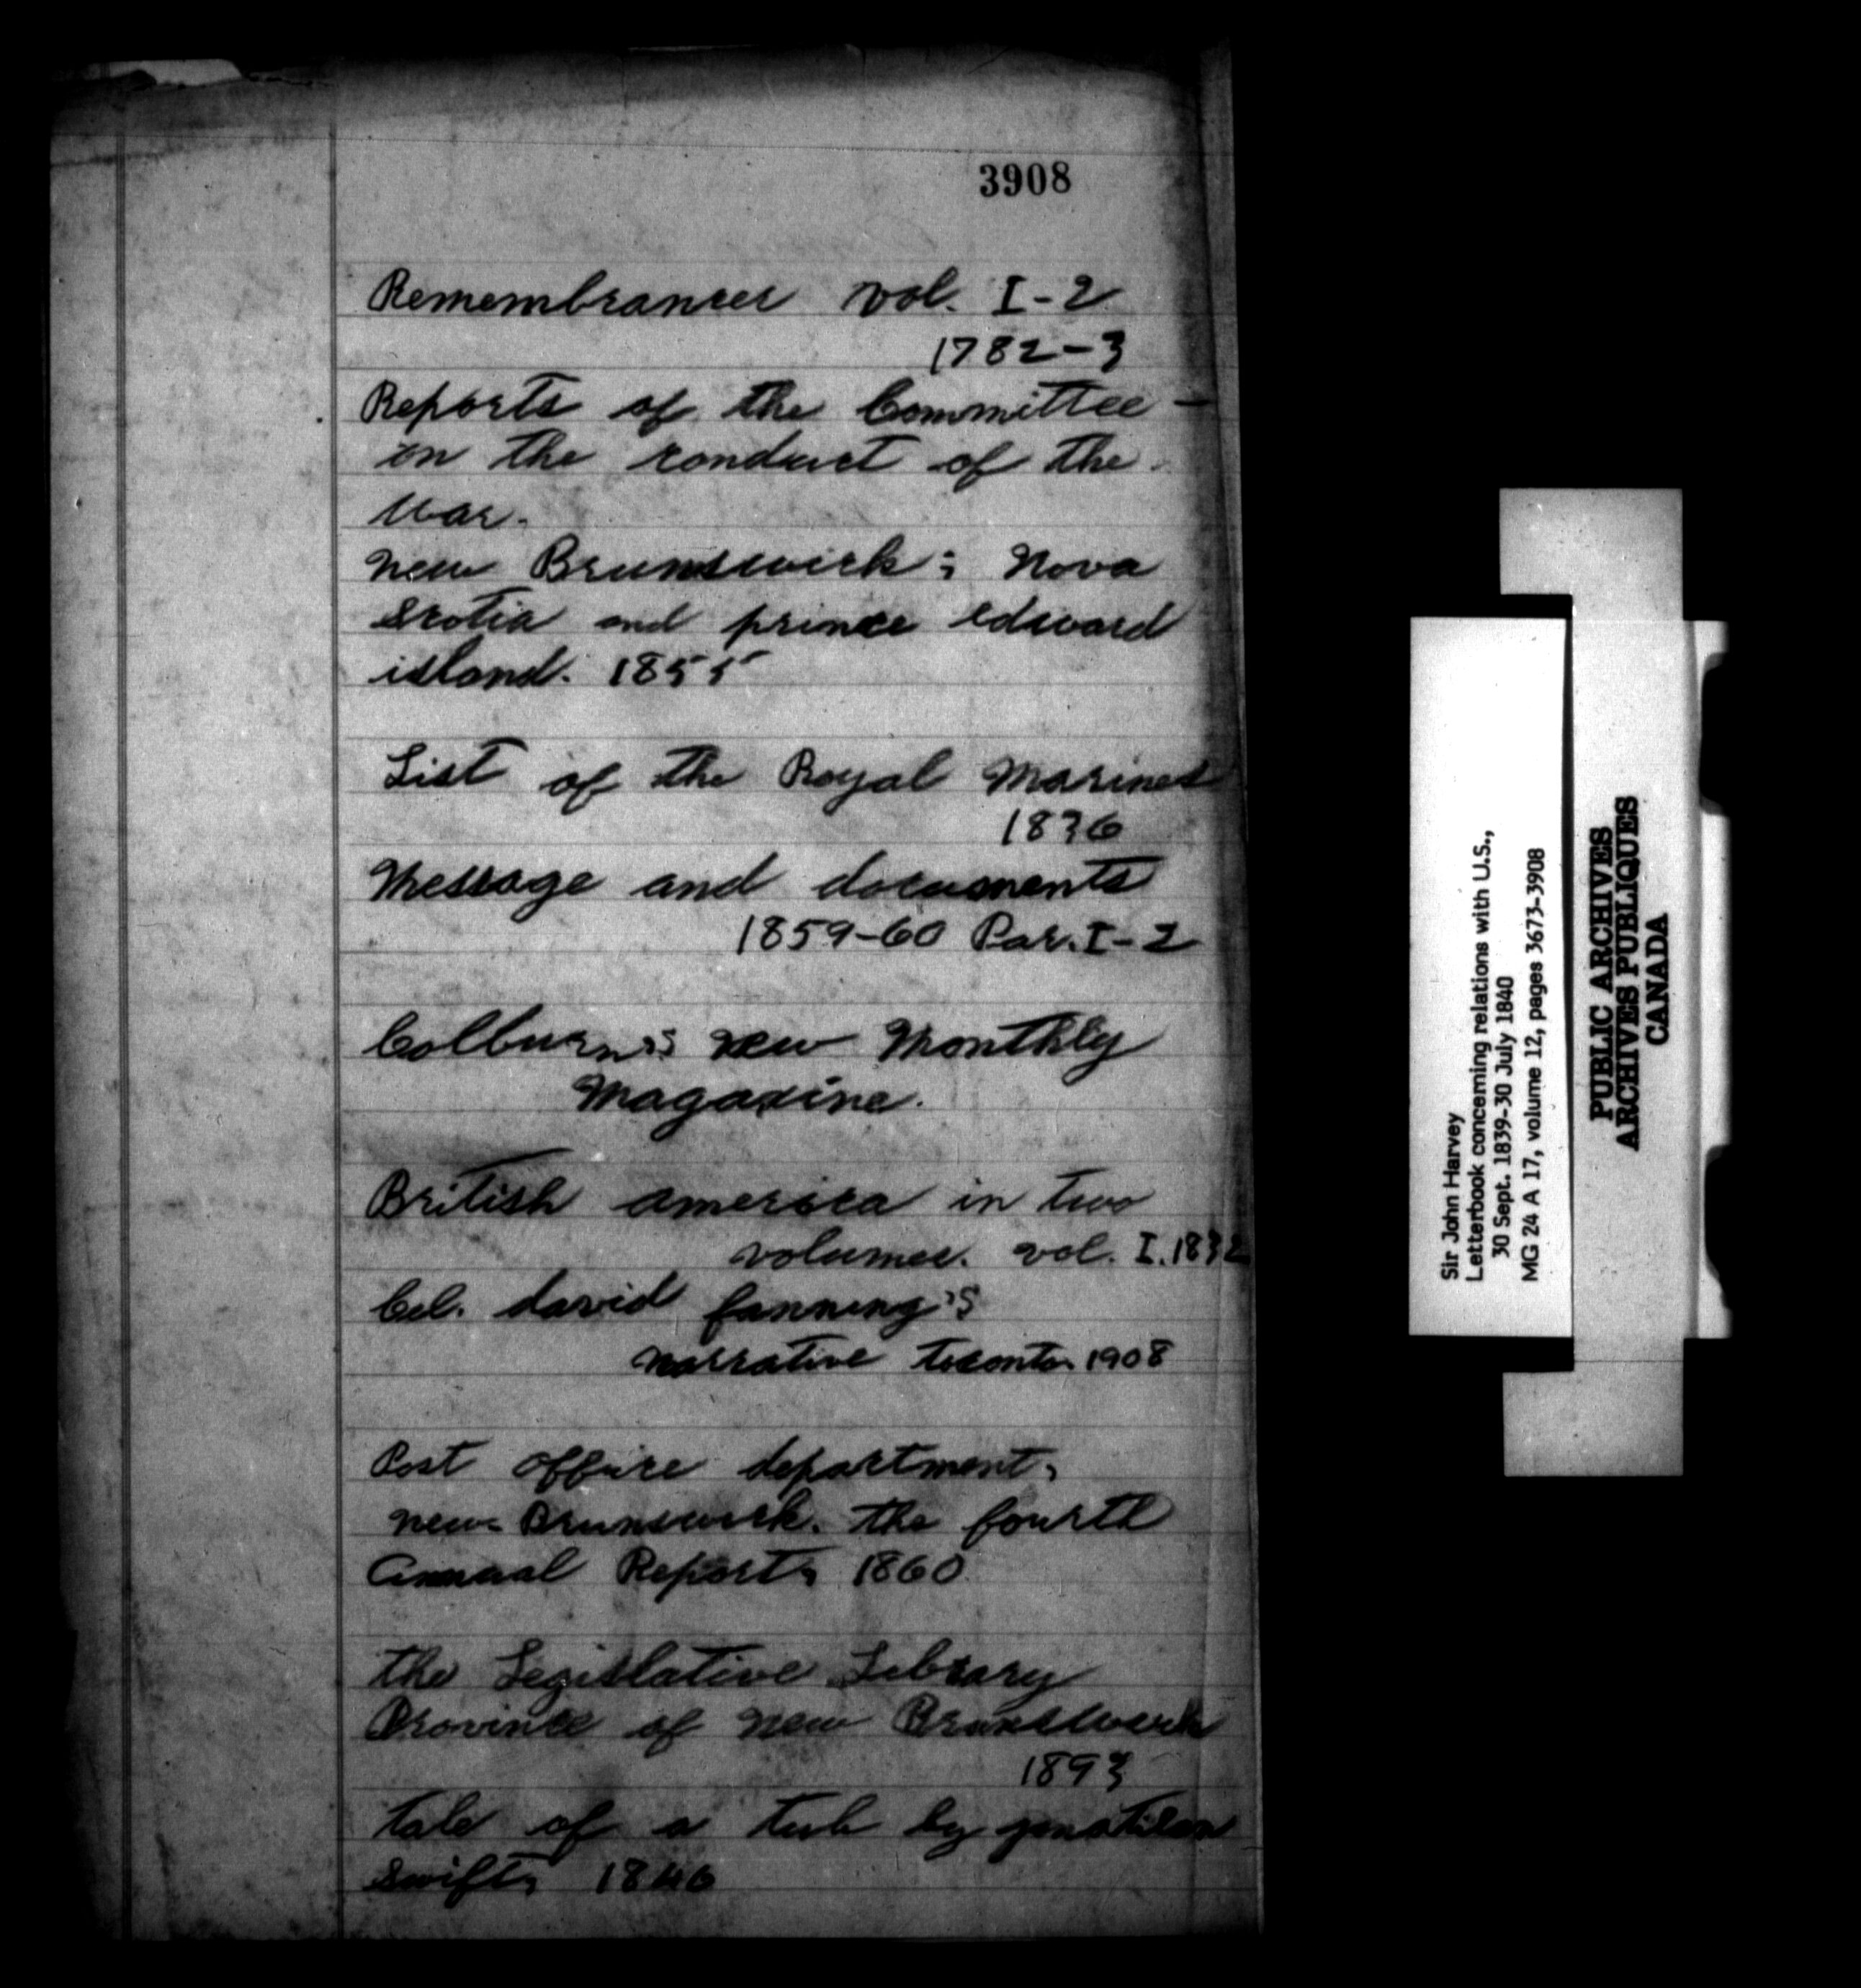 3908
Remembrancer vol. I-2
1782-3
Reports of the Committee -
on the conduct of the
War.
New Brunswick; Nova
Scotia and prince edward
island. 1855
List of the Royal Marines
1836
Message and documents
1859-60 Par. I-2
Colburn's New Monthly
Magazine.
British america in two
volumes. vol. I. 1832
Col. david fanning's
narrative toronto. 1908
Post office department,
new Brunswick. the fourth
Annual Report, 1860
the Legislative Library
Province of New Brunswick
1893
tale of a tub by jonathan
Swift, 1846
Sir John Harvey
Letterbook concerning relations with U.S.,
30 Sept. 1839-30 July 1840
MG 24 A 17, volume 12, pages 3673-3908
PUBLIC ARCHIVES
ARCHIVES PUBLIQUES
CANADA